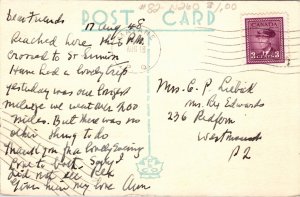 #82 N260 $1.00
POST CARD
Dear Friends
17 Aug 48
Reached here this P.M.
Crossed to St
Have had a lovely trip
yesterday was our longest
mileage we went over 300
miles. But there was no
other thing to do
Thank you for a lovely evening
Love to both. Sorry I
did not all
given her my love
CANADA
3 3
Mrs. C. P. Liebich
Mrs. Rex Edwards
236 Redfern
Westmount
P2